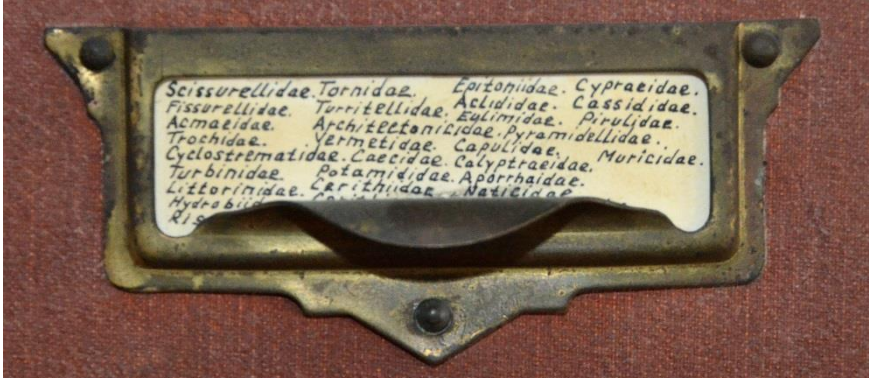 Scissurellidae. Tornidae. Epitoniidae. Cypraeidae.
Fissurellidae. Turritellidae. Aclididae. Cassididae.
Acmaeidae. Architectonicidae. Eulimidae. Pirulidae.
Trochidae. Vermetidae. Capulidae. Pyramidellidae.
Cyclostrematidae. Caecidae. Calyptraeidae. Muricidae.
Turbinidae Potamididae. Aporrhaidae.
Littorinidae. Cerithiidae Naticidae